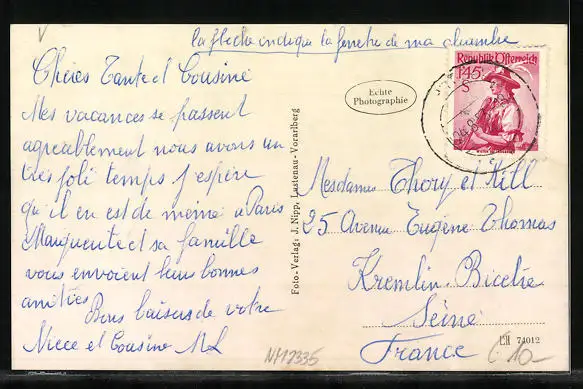 la flèche indique la fenêtre de ma chambre
Chères Tante et Cousine
Mes vacances se passent
agreablement nous avons un
très joli temps j'espère
qu'il en est de meme à Paris
Marguerite et sa famille
vous envoient leurs bonnes
amitiées
Bons baisers de votre
Niece et Cousine ML
Echte
Photographie
Republik Österreich
1.45
S
Foto-Verlag: J. Nipp, Lustenau-Vorarlberg
Mesdames Thory et Kill
25 Avenue Eugène Thomas
Kremlin. Bicetre
Seine
France
74012
NM12335
€ 10-